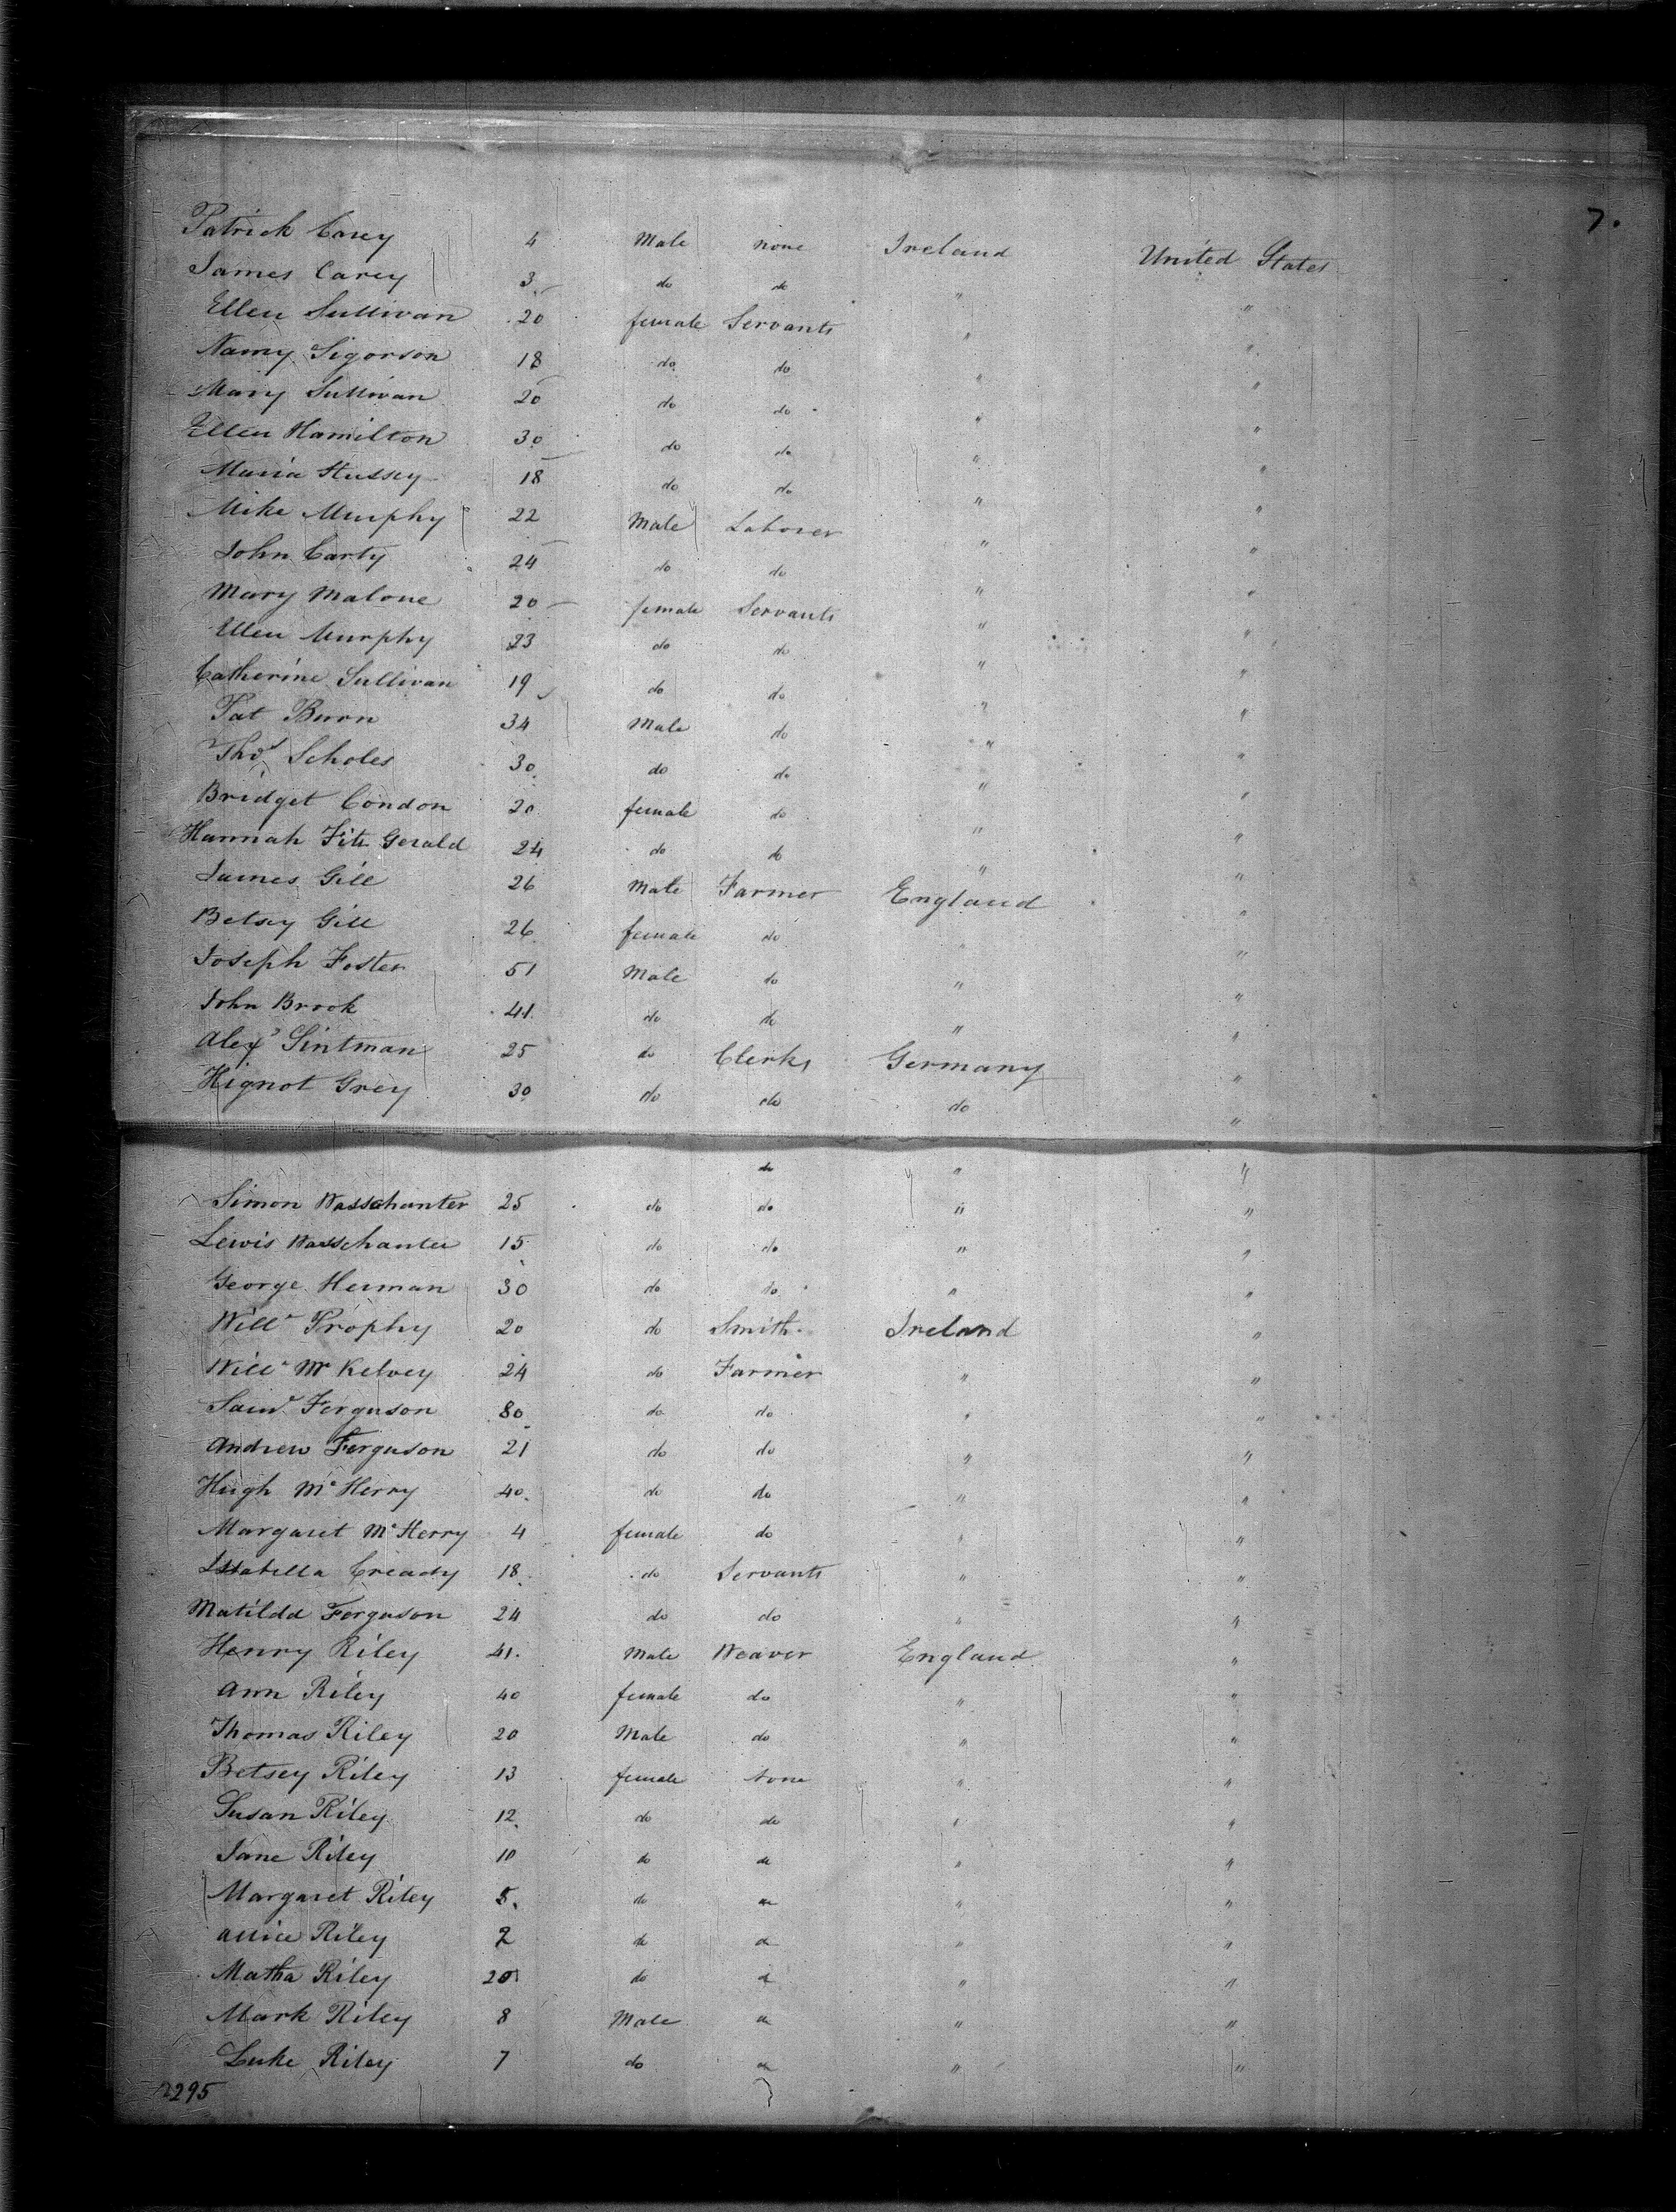 7.
Patrick Carey 4 Male none Ireland United States
James Carey 3 do do " "
Ellen Sullivan 20 female Servants " "
Nancy Sigorson 18 do do " "
Mary Sullivan 20 do do " "
Ellen Hamilton 30 do do " "
Maria Hussey 18 do do " "
Mike Murphy 22 Male Laborer " "
John Carty 24 do do " "
Mary Malone 20 female Servants " "
Ellen Murphy 23 do do " "
Catherine Sullivan 19 do do " "
Pat Burn 34 Male do " "
Thos Scholes 30 do do " "
Bridget Condon 20 female do " "
Hannah Fitz Gerald 24 do do " "
James Gill 26 Male Farmer England "
Betsey Gill 26 female do " "
Joseph Foster 51 Male do " "
John Brook 41 do do " "
Alexr Sintman 25 do Clerks Germany "
Hignot Grey 30 do do do "
do " "
Simon Wasschanter 25 do do " "
Lewis Wasschanter 15 do do " "
George Herman 30 do do " "
Willm Prophy 20 do Smith Ireland "
Willm Mc Kelvey 24 do Farmer " "
Saml Ferguson 80 do do " "
Andrew Ferguson 21 do do " "
Hugh Mc Herry 40 do do " "
Margaret Mc Herry 4 female do " "
Issabella Cready 18 do Servants " "
Matilda Ferguson 24 do do " "
Henry Riley 41 Male Weaver England "
Ann Riley 40 female do " "
Thomas Riley 20 Male do " "
Betsey Riley 13 female None " "
Susan Riley 12 do do " "
Jane Riley 10 do do " "
Margaret Riley 5 do do " "
Allice Riley 2 do do " "
Matha Riley 20 do do " "
Mark Riley 8 Male do " "
Luke Riley 7 do do " "
295